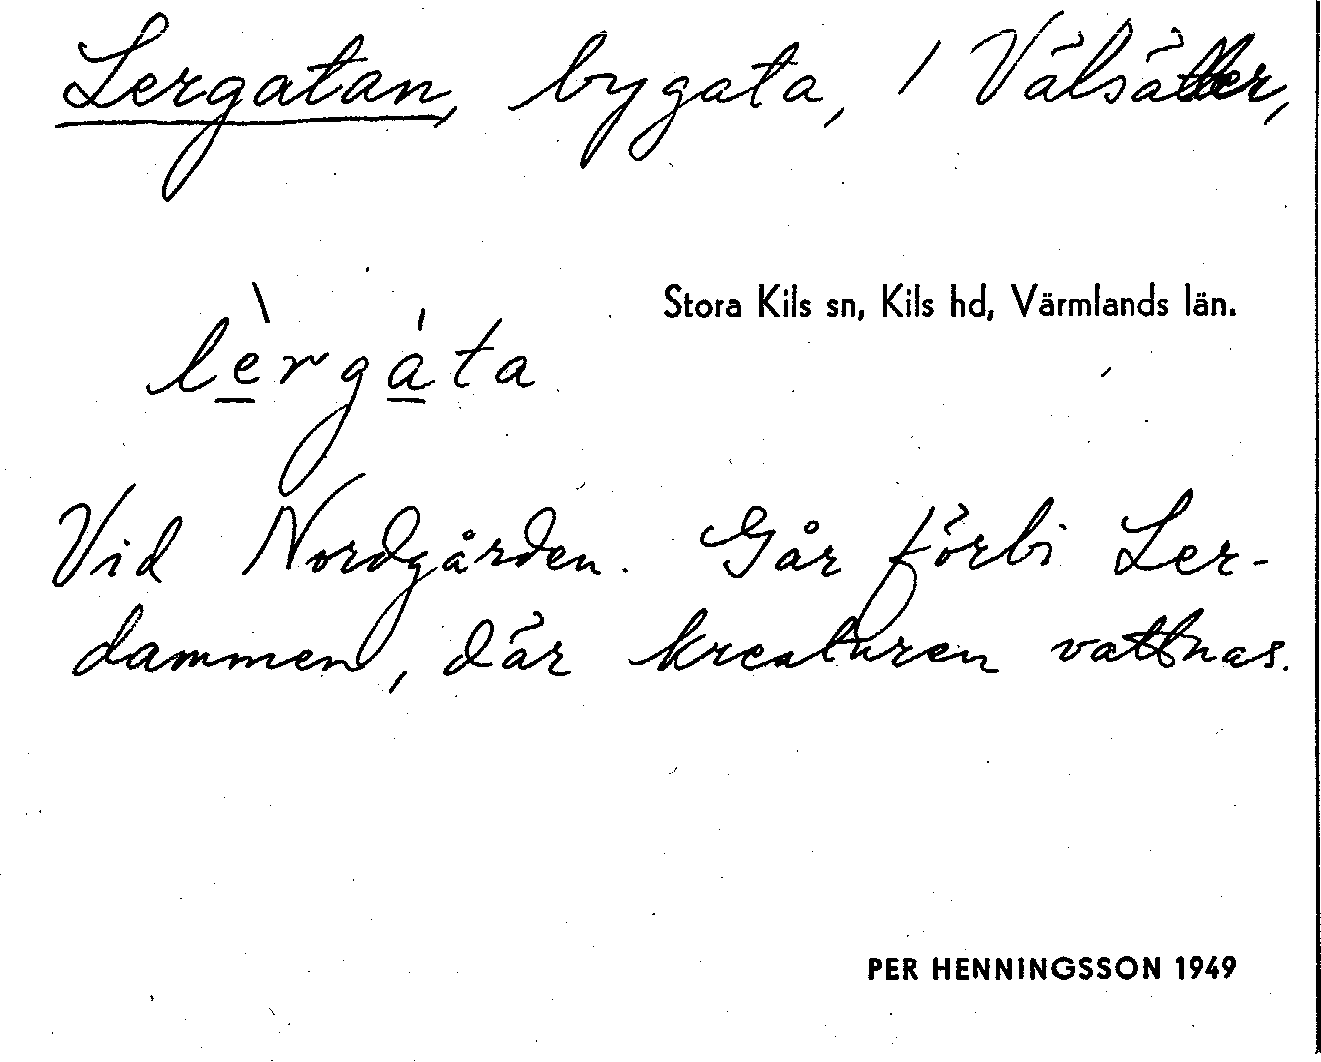 Lergatan, bygata, / Välsätter,
Stora Kils sn, Kils hd, Värmlands län.
lèrgáta
Vid Nordgården. Går förbi Ler-
dammen, där kreaturen vattnas.
PER HENNINGSSON 1949